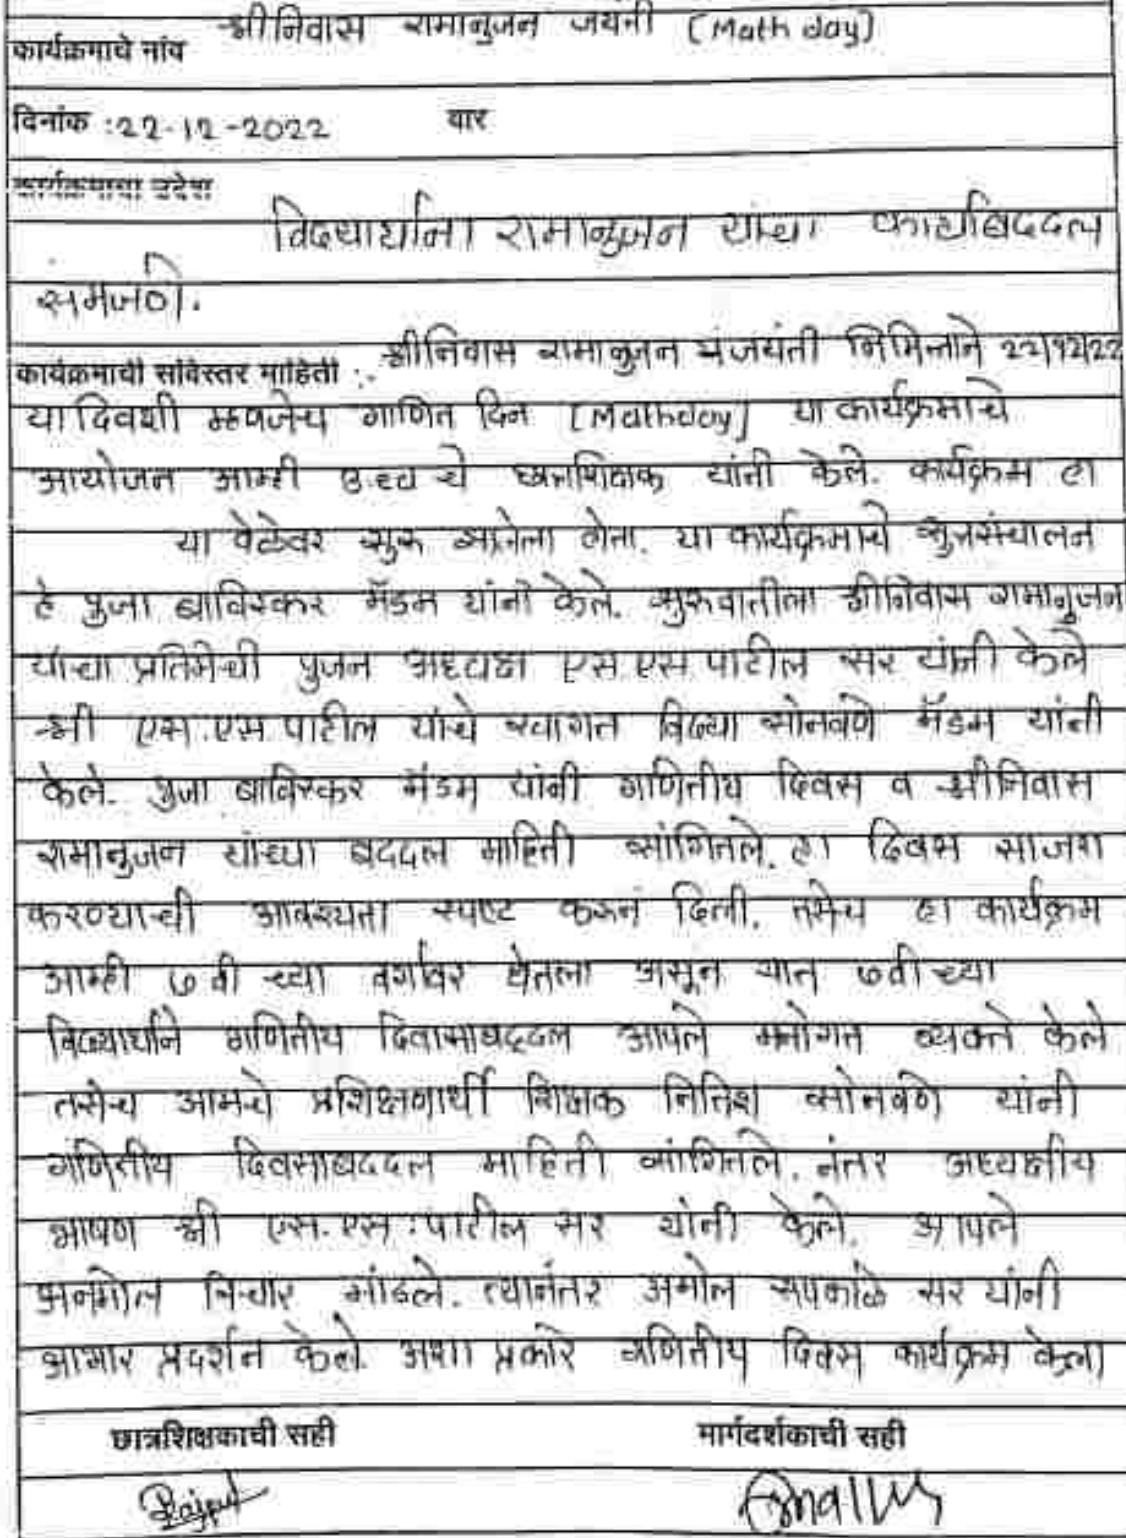 श्रीनिवास रामानुजन जयंती (Math day)
कार्यक्रमाचे नांव
दिनांक :22-12-2022 वार
कार्यक्रमाचा उद्देश
विद्यार्थ्यांना रामानुजन यांच्या कार्याबद्दल
समजणे.
कार्यक्रमाची सविस्तर माहिती :- श्रीनिवास रामानुजन जयंती निमित्ताने 22/12/22
या दिवशी म्हणजेच गणित दिन [Mathday] या कार्यक्रमाचे
आयोजन आम्ही B.ed चे छात्रशिक्षक यांनी केले. कार्यक्रम हा
या वेळेवर सुरु झालेला होता. या कार्यक्रमाचे सुत्रसंचालन
हे पुजा बाविस्कर मॅडम यांनी केले. सुरुवातीला श्रीनिवास रामानुजन
यांचा प्रतिमेची पुजन अध्यक्ष एस.एस.पाटील सर यांनी केले
श्री एस.एस.पाटील यांचे स्वागत विद्या सोनवणे मॅडम यांनी
केले. पुजा बाविस्कर मॅडम यांनी गणितीय दिवस व श्रीनिवास
रामानुजन यांच्या बददल माहिती सांगितले. हा दिवस साजरा
करण्याची आवश्यता स्पष्ट करून दिली. तसेच हा कार्यक्रम
आम्ही ७ वी च्या वर्गावर घेतला असून यात ७वी च्या
विद्यार्थाने गणितीय दिवासाबद्दल आपले मनोगत व्यक्त केले
तसेच आमचे प्रशिक्षणार्थी शिक्षक नितिश सोनवणे यांनी
गणितीय दिवसाबददल माहिती सांगितले. नंतर अध्यक्षीय
भाषण श्री एस.एस.पाटील सर यांनी केले. आपले
अनमोल विचार मांडले. त्यानंतर अमोल सपकाळे सर यांनी
आभार प्रदर्शन केले. अशा प्रकारे गणितीय दिवस कार्यक्रम केला
छात्रशिक्षकाची सही मार्गदर्शकाची सही
Rajput